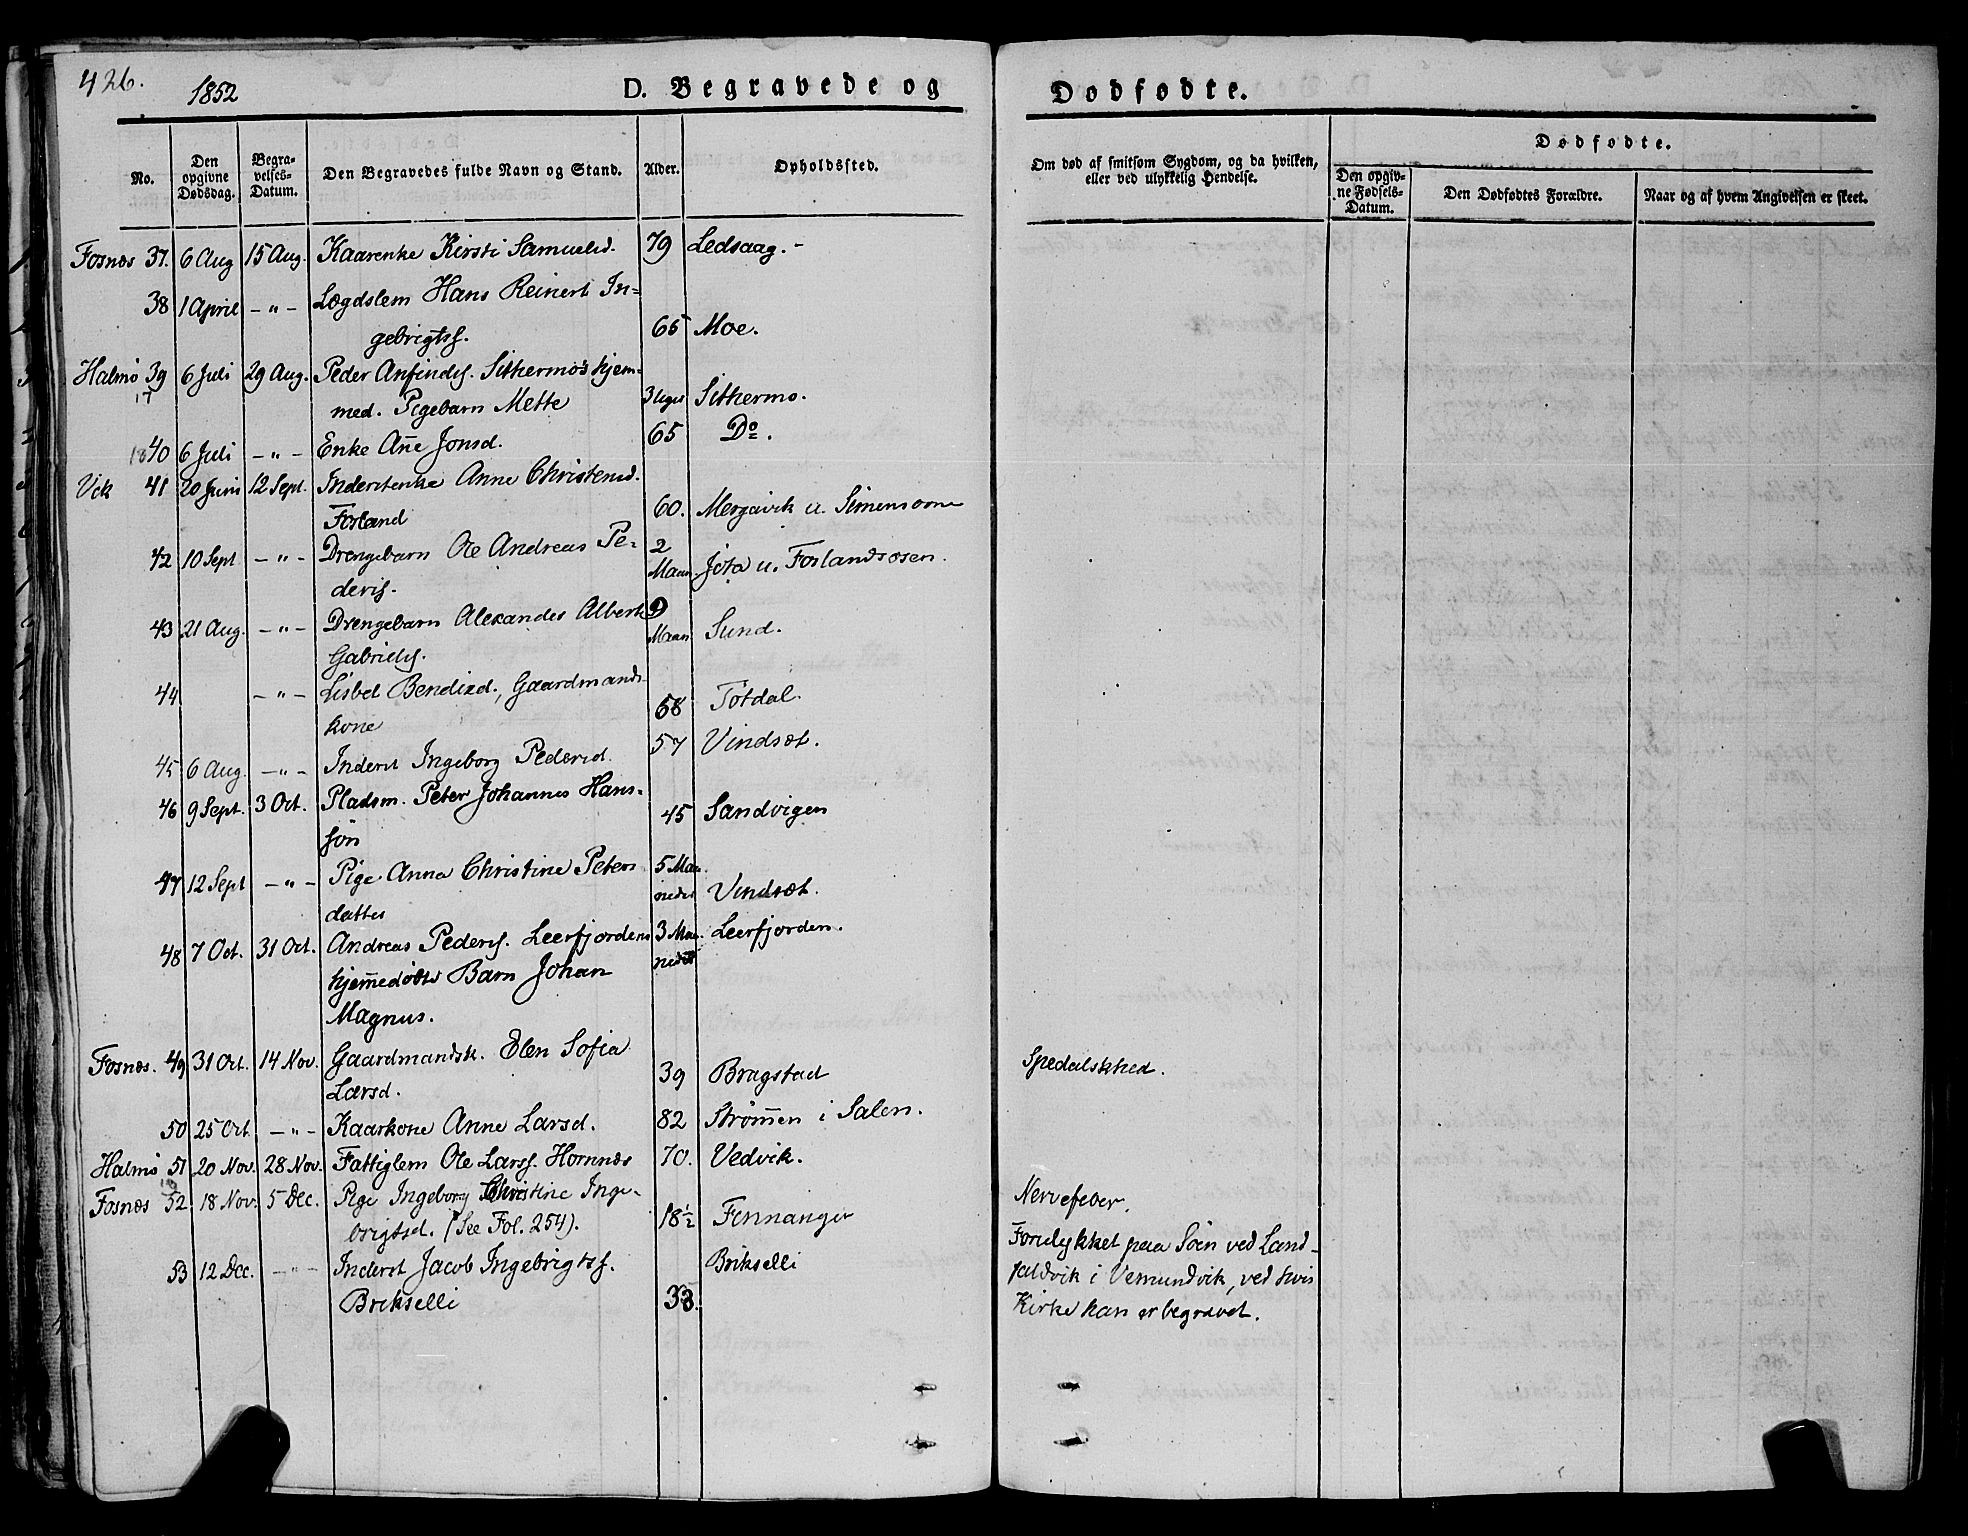 426.
1852
D. Begravede og Dødfødte.
No.
Den opgivne Dødsdag.
Begravelses-Datum.
Den Begravedes fulde Navn og Stand.
Alder.
Opholdssted.
Om død af smitsom Sygdom, og da hvilken, eller ved ulykkelig Hendelse.
Dødfødte.
Den opgivne Fødsels-Datum.
Den Dødfødtes Forældre.
Naar og af hvem Angivelsen er skeet.
Fosnæs 37. 6 Aug 15 Aug. Kaarenke Kirsti Samuelsd. 79 Ledsaag.-
38 1 April -"- Lægdslem Hans Reinert In-
gebrigtss. 65 Moe.
Halmø 39 6 Juli 29 Aug. Peder Anfindss. Sithermos hjem-
17 med. Pigebarn Mette 3 Uger Sithermo.
18 40 6 Juli -"- Enke Añe Jonsd. 65 Do.
Vik 41 20 Juni 12 Sept. Inderstenke Anne Christensd.
Forland 60. Mergavik u. Simensoone
42 10 Sept -"- Drengebarn Ole Andreas Pe- 2
ders. Maan. Jøta u. Forlandsosen.
43 21 Aug. -"- Drengebarn Alexander Albert 9
Gabrielss. Maan Sund.
44 -"- Lisbet Bendixd., Gaardmands-
kone 58 Totdal.
45 6 Aug. -"- Inderst Ingeborg Pedersd. 57 Vindsæt.
46 9 Sept. 3 Oct. Pladsm. Peter Johannes Hans-
søn 45 Sandvigen
47 12 Sept -"- Pige Anna Christine Peters 5 Maa-
datter neder Vindsæt.
48 7 Oct. 31 Oct. Andreas Peders. Leerfjordens 3 Maa- Leerfjorden.
hjem̄edøbte Barn Johan neder
Magnus.
Fosnæs. 49 31 Oct. 14 Nov. Gaardmandsk. Elen Sofia
Larsd. 39 Bragstad Spedalskhed.
50 25 Oct -"- Kaarkone Anne Larsd. 82 Strøm̄en i Salen.
Halmø 51 20 Nov. 28 Nov. Fattiglem Ole Larss. Hornnæs 70. Vedvik.
Fosnæs 52. 18 Nov. 5 Dec. Pige Ingeborg Christine Inge-
brigtsd. (See Fol. 254). 18½ Fennanger Nervefeber.
53 12 Dec. -"- Inderst Jacob Ingebrigtss. Brikselli Forulykket paa Søen ved Land-
Brikselli 33. faldvik i Vemundvik, ved hvis
Kirke han er begravet.